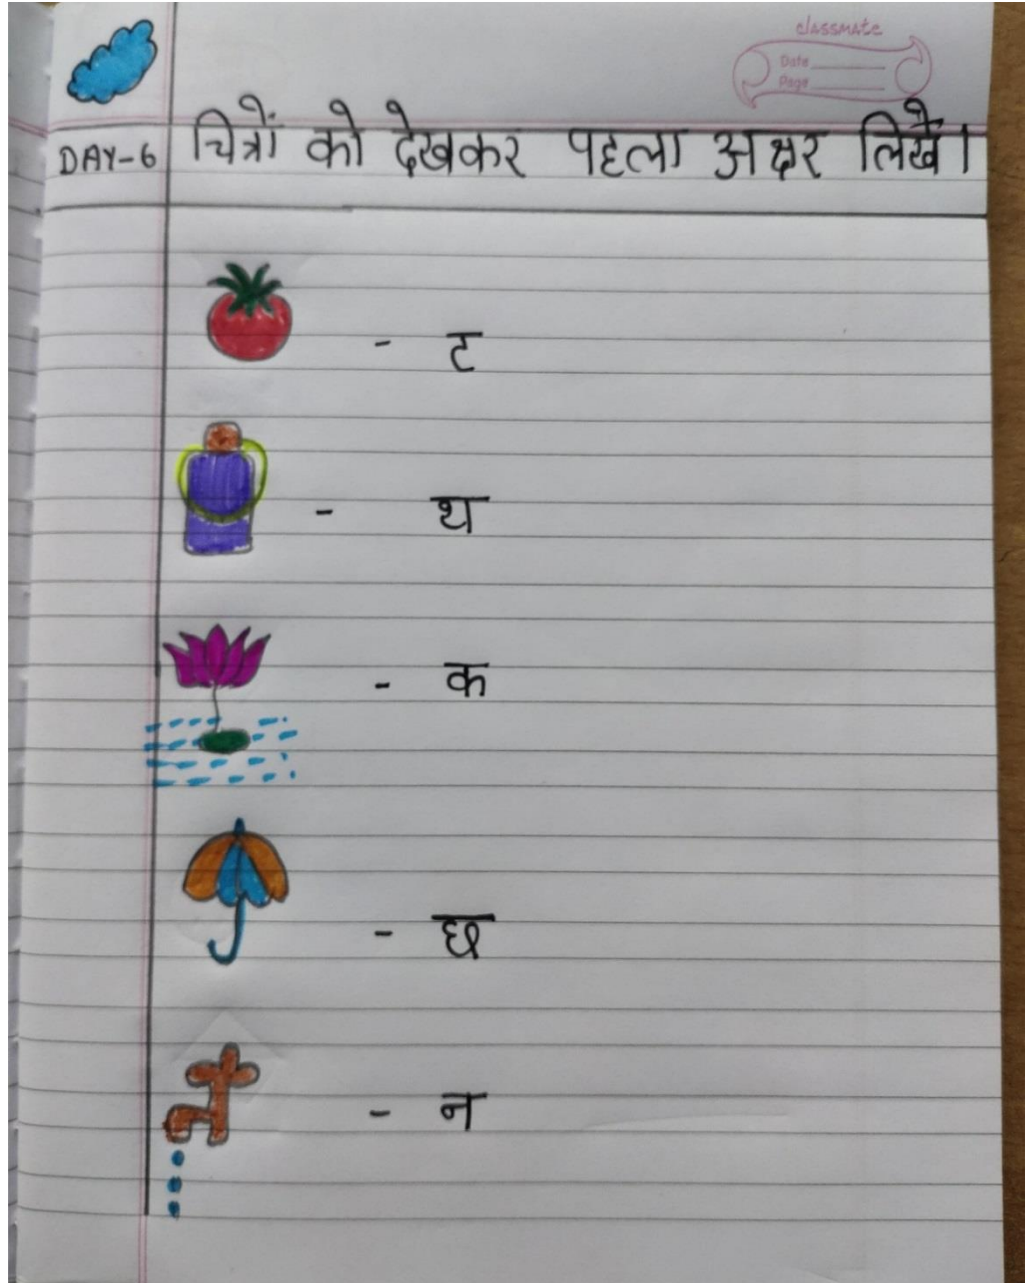 classmate
Date
Page
DAY-6 चित्रों को देखकर पहला अक्षर लिखें।
- ट
- थ
- क
- छ
- न